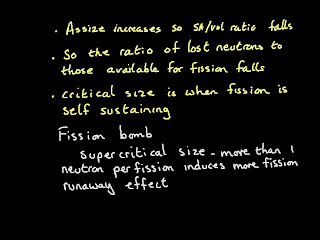 • As size increases so SA/vol ratio falls
• So the ratio of lost neutrons to
those available for fission falls
• critical size is when fission is
self sustaining
Fission bomb
supercritical size - more than 1
neutron per fission induces more fission
runaway effect